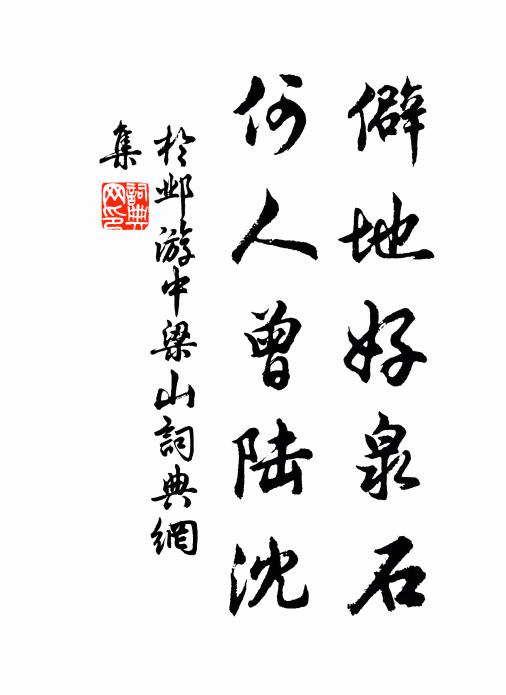 僻地好泉石
何人曾陆沈
於邺游中梁山詞典網
集
詞典
网印